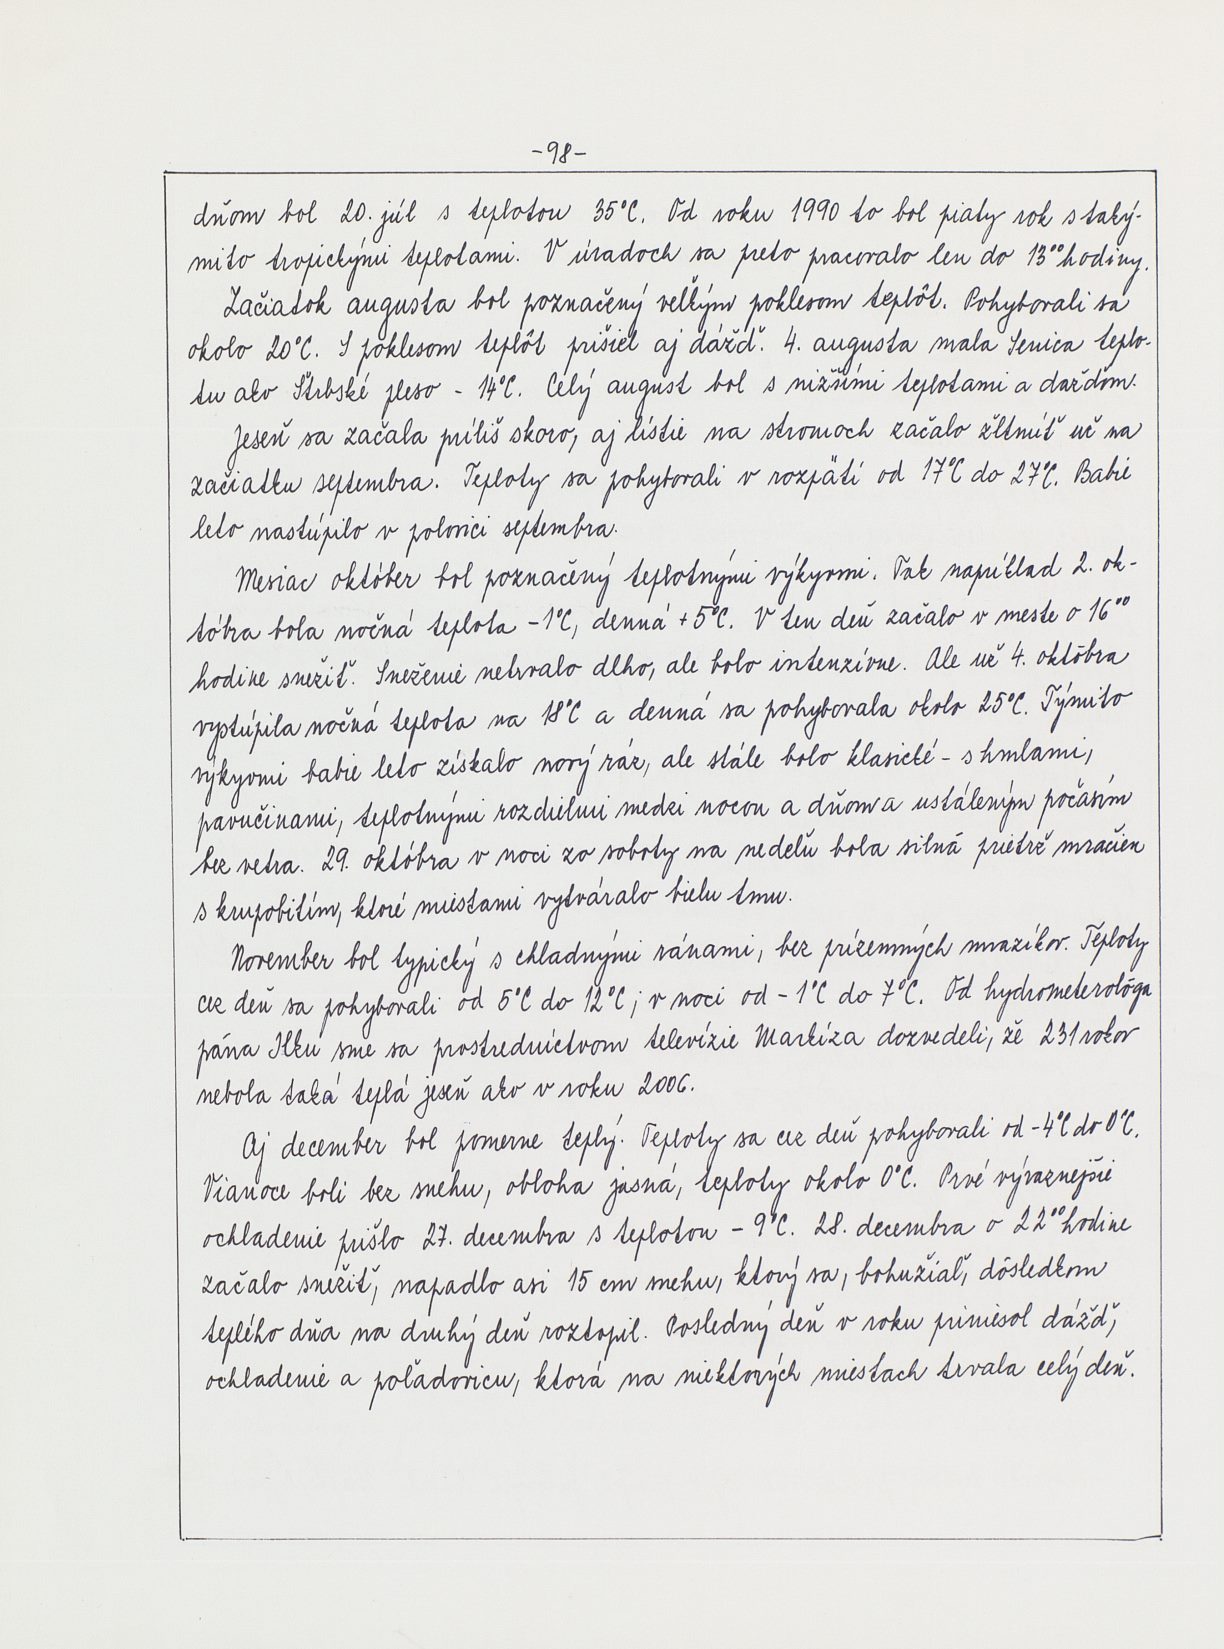 -98-
dňom bol 20. júl s teplotou 35°C. Od roku 1990 to bol piaty rok s taký-
mito tropickými teplotami. V úradoch sa preto pracovalo len do 13⁰⁰ hodiny.
Začiatok augusta bol poznačený veľkým poklesom teplôt. Pohybovali sa
okolo 20°C. S poklesom teplôt prišiel aj dážď. 4. augusta mala Senica teplo-
tu ako Štrbské pleso - 14°C. Celý august bol s nižšími teplotami a dažďom.
Jeseň sa začala príliš skoro, aj lístie na stromoch začalo žltnúť už na
začiatku septembra. Teploty sa pohybovali v rozpätí od 17°C do 27°C. Babie
leto nastúpilo v polovici septembra.
Mesiac október bol poznačený teplotnými výkyvmi. Tak napríklad 2. ok-
tóbra bola nočná teplota -1°C, denná +5°C. V ten deň začalo v meste o 16⁰⁰
hodine snežiť. Sneženie netrvalo dlho, ale bolo intenzívne. Ale už 4. októbra
vystúpila nočná teplota na 18°C a denná sa pohybovala okolo 25°C. Týmito
výkyvmi babie leto získalo nový ráz, ale stále bolo klasické - s hmlami,
pavučinami, teplotnými rozdielmi medzi nocou a dňom a ustáleným počasím
bez vetra. 29. októbra v noci zo soboty na nedeľu bola silná prietrž mračien
s krupobitím, ktoré miestami vytváralo bielu tmu.
November bol typický s chladnými ránami, bez prízemných mrazíkov. Teploty
cez deň sa pohybovali od 5°C do 12°C; v noci od -1°C do 7°C. Od hydrometerológa
pána Ilku sme sa prostredníctvom televízie Markíza dozvedeli, že 231 rokov
nebola taká teplá jeseň ako v roku 2006.
Aj december bol pomerne teplý. Teploty sa cez deň pohybovali od -4°C do 0°C.
Vianoce boli bez snehu, obloha jasná, teploty okolo 0°C. Prvé výraznejšie
ochladenie prišlo 27. decembra s teplotou -9°C. 28. decembra o 22⁰⁰ hodine
začalo snežiť, napadlo asi 15 cm snehu, ktorý sa, bohužiaľ, dôsledkom
teplého dňa na druhý deň roztopil. Posledný deň v roku priniesol dážď,
ochladenie a poľadovicu, ktorá na niektorých miestach trvala celý deň.